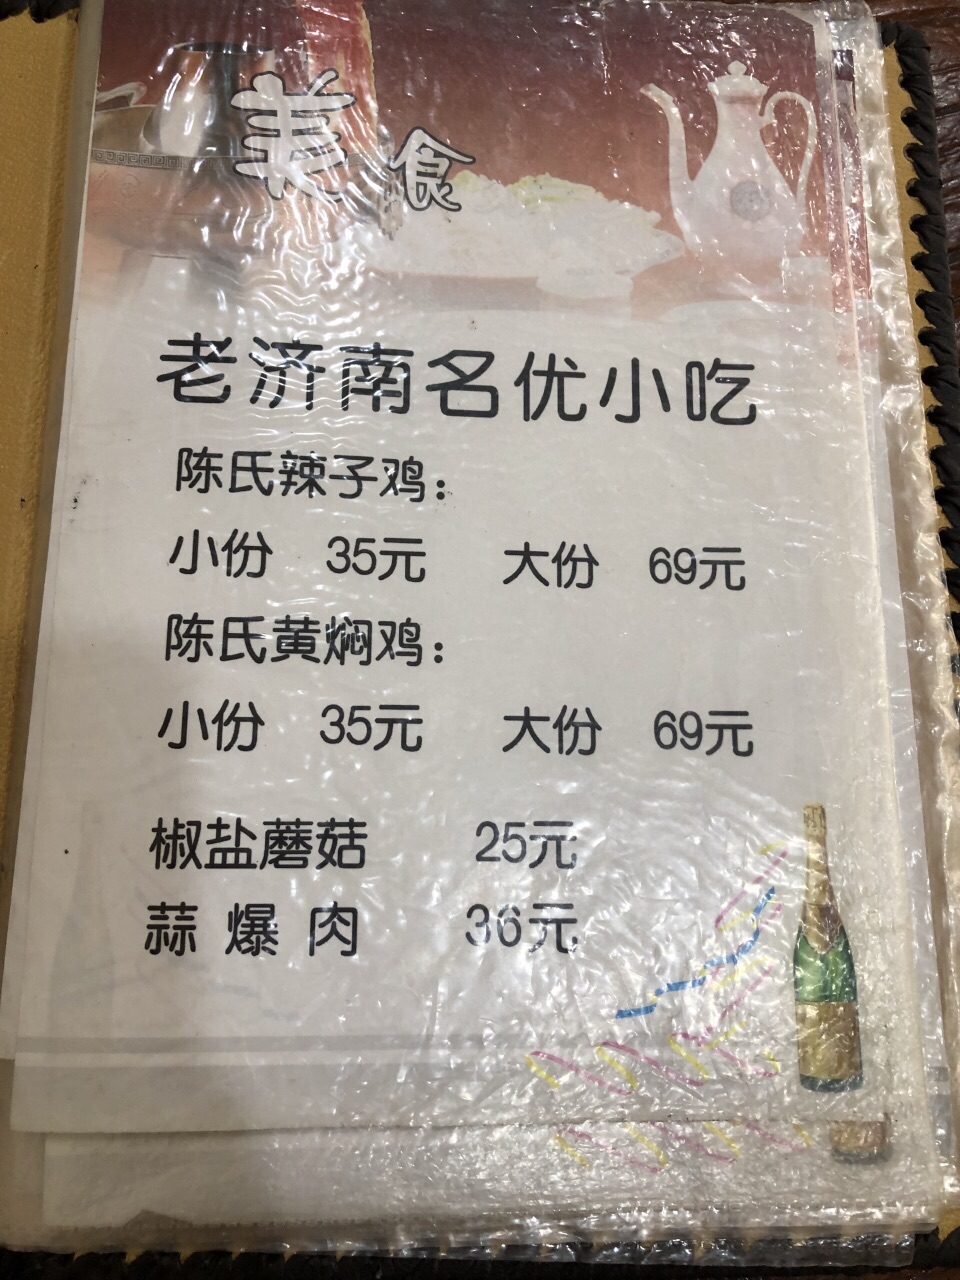 美食
老济南名优小吃
陈氏辣子鸡：
小份 35元 大份 69元
陈氏黄焖鸡：
小份 35元 大份 69元
椒盐蘑菇 25元
蒜爆肉 36元